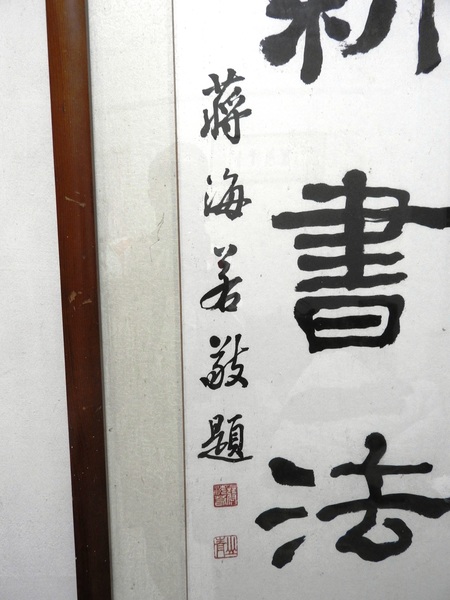 新書法
蔣海若敬題